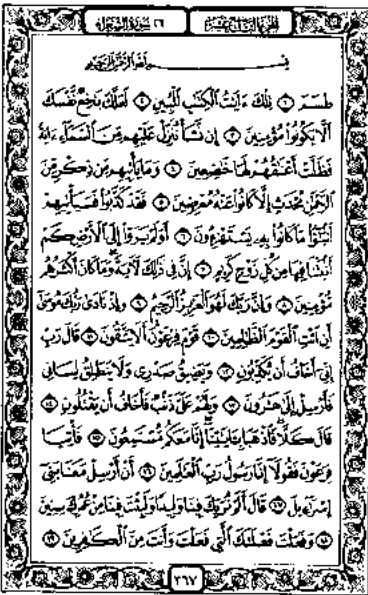 الجزء التاسع عشر
٢٦ سورة الشعراء
بسم الله الرحمن الرحيم
طسٓمٓ ١ تِلْكَ ءَايَٰتُ ٱلْكِتَٰبِ ٱلْمُبِينِ ٢ لَعَلَّكَ بَٰخِعٌ نَّفْسَكَ
أَلَّا يَكُونُوا۟ مُؤْمِنِينَ ٣ إِن نَّشَأْ نُنَزِّلْ عَلَيْهِم مِّنَ ٱلسَّمَآءِ ءَايَةً
فَظَلَّتْ أَعْنَٰقُهُمْ لَهَا خَٰضِعِينَ ٤ وَمَا يَأْتِيهِم مِّن ذِكْرٍ مِّنَ
ٱلرَّحْمَٰنِ مُحْدَثٍ إِلَّا كَانُوا۟ عَنْهُ مُعْرِضِينَ ٥ فَقَدْ كَذَّبُوا۟ فَسَيَأْتِيهِمْ
أَنۢبَٰٓؤُا۟ مَا كَانُوا۟ بِهِۦ يَسْتَهْزِءُونَ ٦ أَوَلَمْ يَرَوْا۟ إِلَى ٱلْأَرْضِ كَمْ
أَنۢبَتْنَا فِيهَا مِن كُلِّ زَوْجٍ كَرِيمٍ ٧ إِنَّ فِى ذَٰلِكَ لَءَايَةً وَمَا كَانَ أَكْثَرُهُم
مُّؤْمِنِينَ ٨ وَإِنَّ رَبَّكَ لَهُوَ ٱلْعَزِيزُ ٱلرَّحِيمُ ٩ وَإِذْ نَادَىٰ رَبُّكَ مُوسَىٰٓ
أَنِ ٱئْتِ ٱلْقَوْمَ ٱلظَّٰلِمِينَ ١٠ قَوْمَ فِرْعَوْنَ أَلَا يَتَّقُونَ ١١ قَالَ رَبِّ
إِنِّىٓ أَخَافُ أَن يُكَذِّبُونِ ١٢ وَيَضِيقُ صَدْرِى وَلَا يَنطَلِقُ لِسَانِى
فَأَرْسِلْ إِلَىٰ هَٰرُونَ ١٣ وَلَهُمْ عَلَىَّ ذَنۢبٌ فَأَخَافُ أَن يَقْتُلُونِ ١٤
قَالَ كَلَّا فَٱذْهَبَا بِـَٔايَٰتِنَآ إِنَّا مَعَكُم مُّسْتَمِعُونَ ١٥ فَأْتِيَا
فِرْعَوْنَ فَقُولَآ إِنَّا رَسُولُ رَبِّ ٱلْعَٰلَمِينَ ١٦ أَنْ أَرْسِلْ مَعَنَا بَنِىٓ
إِسْرَٰٓءِيلَ ١٧ قَالَ أَلَمْ نُرَبِّكَ فِينَا وَلِيدًا وَلَبِثْتَ فِينَا مِنْ عُمُرِكَ سِنِينَ
١٨ وَفَعَلْتَ فَعْلَتَكَ ٱلَّتِى فَعَلْتَ وَأَنتَ مِنَ ٱلْكَٰفِرِينَ ١٩
٣٦٧